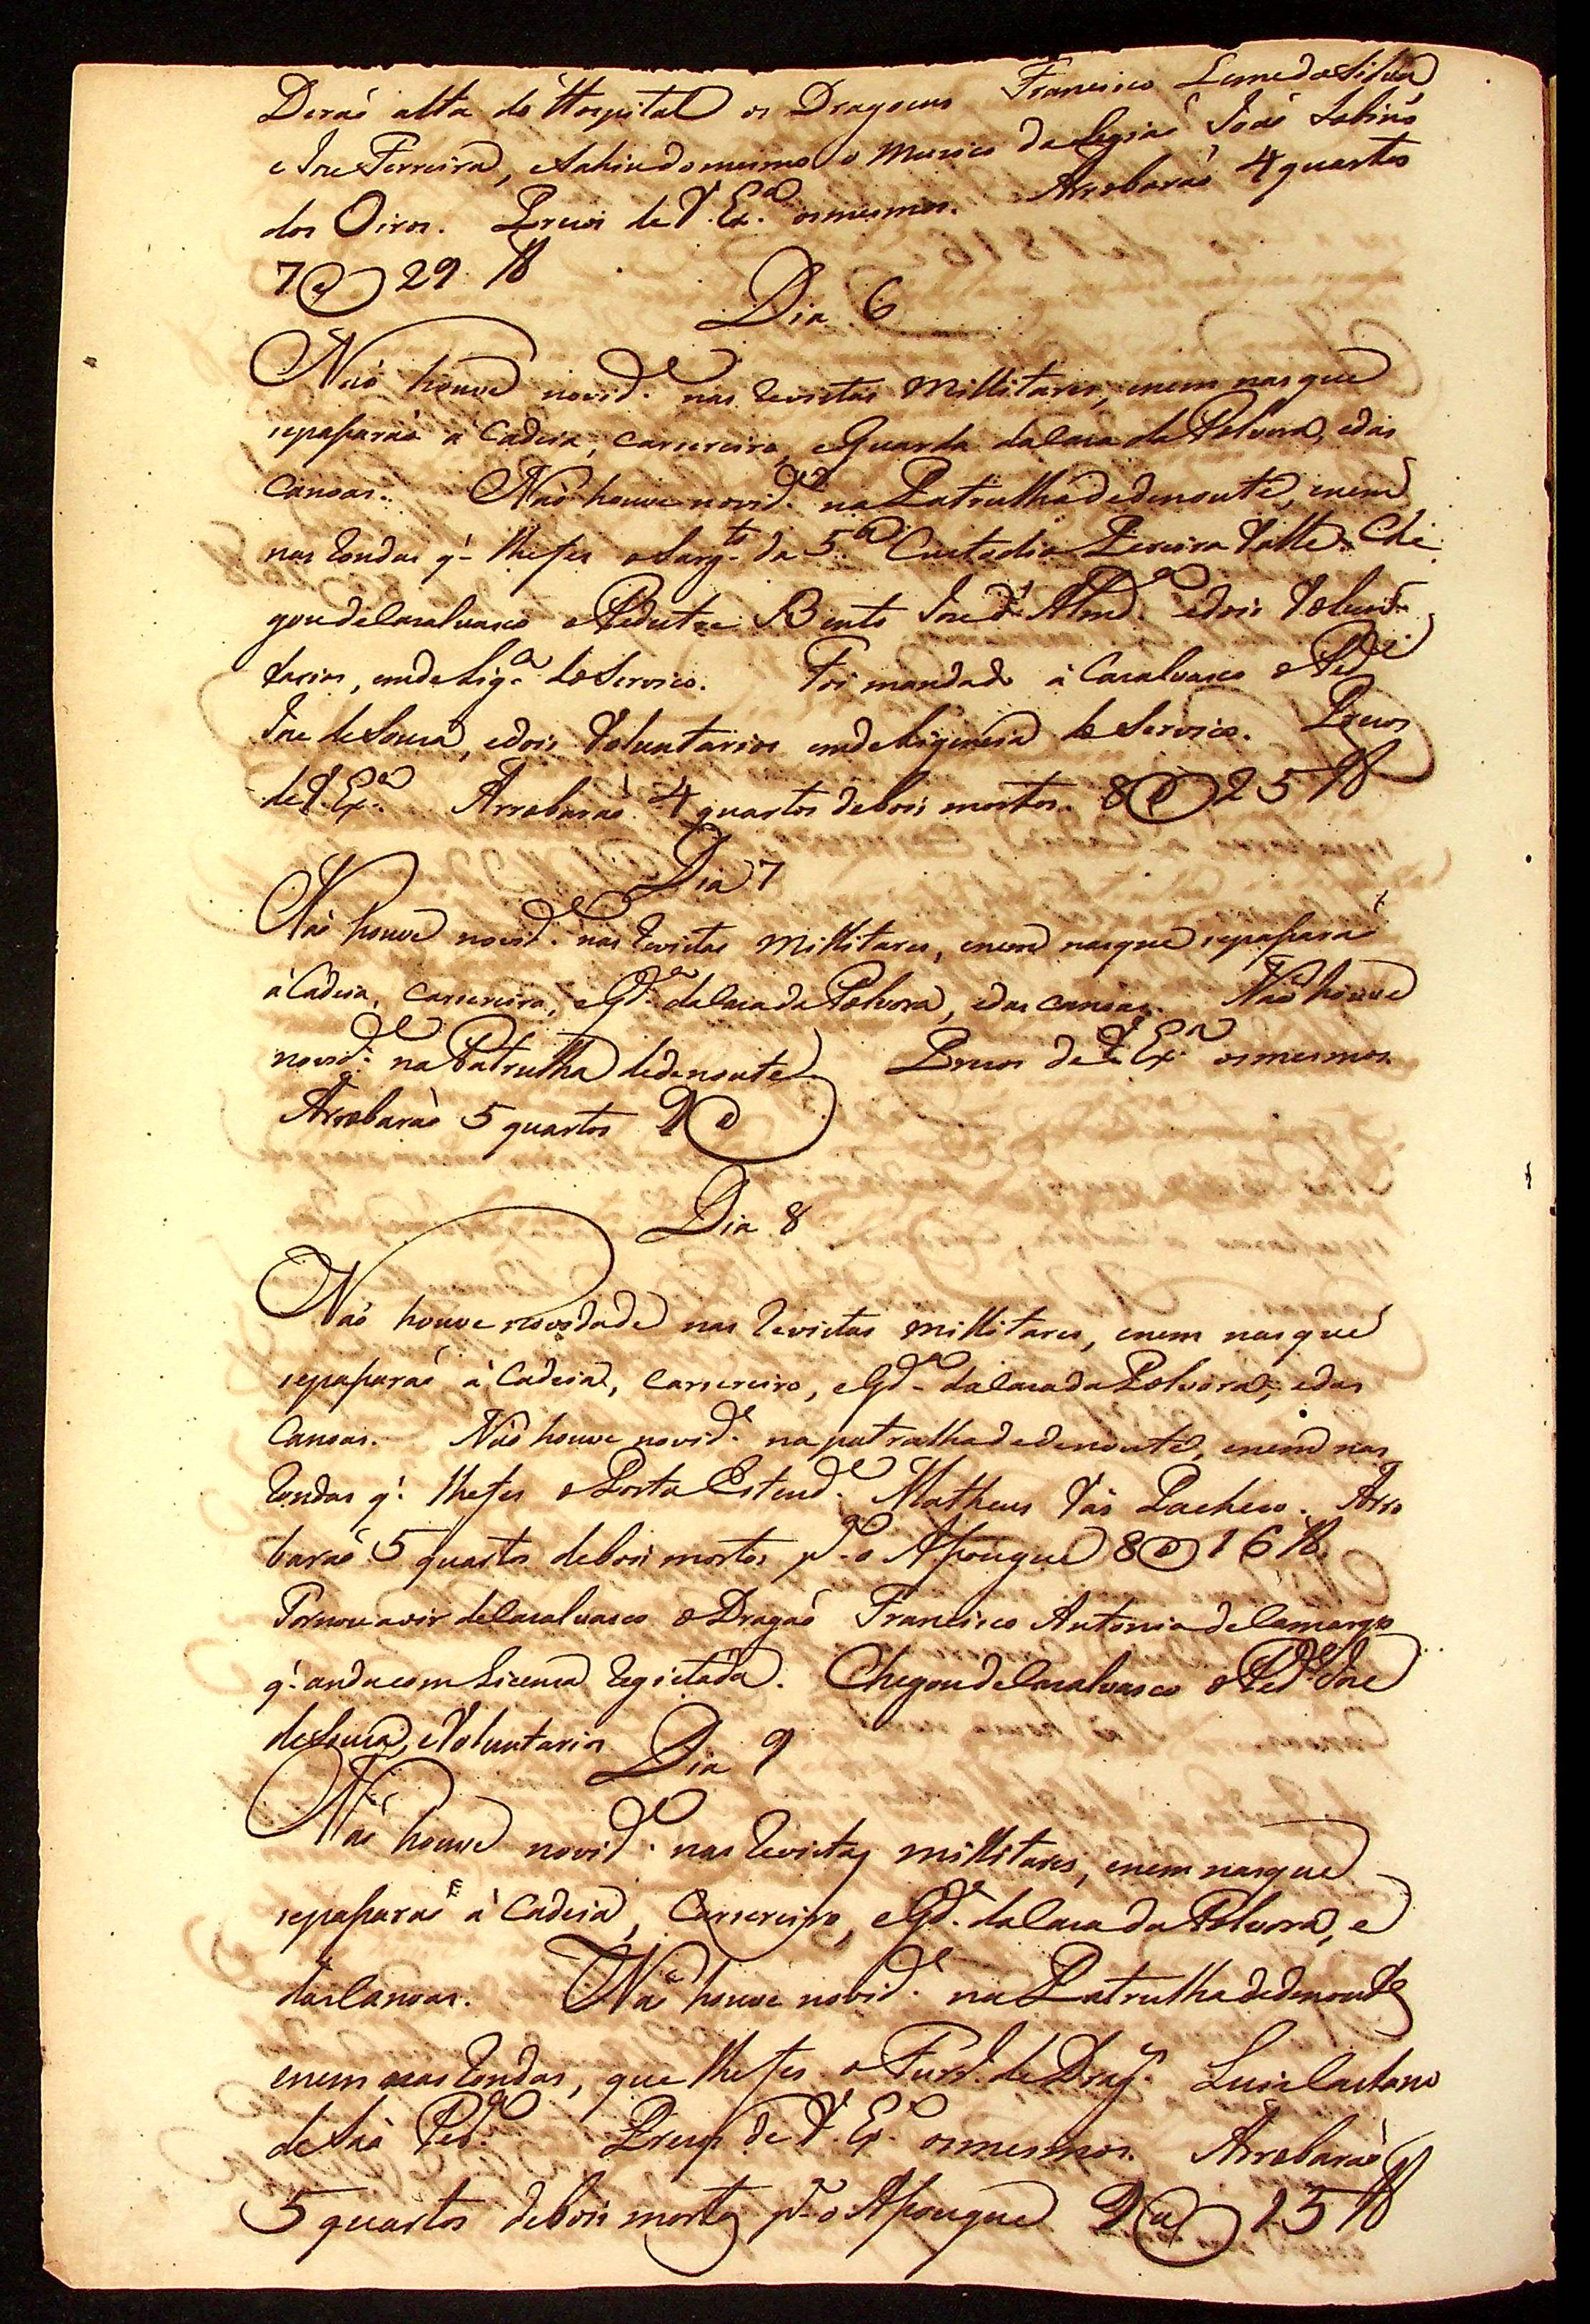 Deraõ alta do Hospital os Dragoens Francisco Leme da Silva
e Joze Ferreira, e sahindo mesmo o Muzico da Legiaõ Joaõ Sabino
dos Oiros. Prezos de V. Ex.ª os mesmos. Arrobaraõ 4 quartos
7@ 29 lb
Dia 6
Naõ houve novid.e nas revistas Millitares, e nem nas que
se passaraõ à Cadeia, Carsereiro, e Guarda da Caza da Polvora, e das
Canoas. Naõ houve novid.e na Patrulha de denoute, e nem
nas rondas q' lhe fes o Sarg.to da 5.ª Custodio Pereira Valle. Che
gou de Cazalvasco o Pedestre Bento Joze d' Almd.ª e dois Volun
tarios, em delig.ª do Servico. Foi mandado à Cazalvasco o Ped.e
Joze de Souza, e dois Voluntarios em deligencia do Servico. Prezos
de V. Ex.ª Arrobaraõ 4 quartos de bois mortos. 8@ 25 lb
Dia 7
Naõ houve novid.e nas revistas Millitares, e nem nas que se passaraõ
à Cadeia, Carsereiro, e Gd.ª da Caza da Polvora, e das canoas. Naõ houve
novid.e na Patrulha de denoute. Prezos de V. Ex.ª os mesmos
Arrobaraõ 5 quartos 9@
Dia 8
Naõ houve novidade nas revistas millitares, e nem nas que
se passaraõ à Cadeia, Carsereiro, e Gd.ª da Caza da Polvora, e das
Canoas. Naõ houve novid.e na patrulha de denoute, e nem nas
rondas q' lhe fes o Porta Estend.e Matheus Vas Pacheco. Arro
baraõ 5 quartos de bois mortos p.ª o Assougue 8@ 16 lb
Tornou a vir de Cazalvasco o Dragaõ Francisco Antonio de Camargo
q' anda com Licenca registada. Chegou de Cazalvasco o Ped.e Joze
de Souza, e Voluntarios
Dia 9
Naõ houve novid.e nas revistas millitares, e nem nas que
se passaraõ à Cadeia, Carsereiro, e Gd.ª da Caza da Polvora, e
das Canoas. Naõ houve novid.e na Patrulha de denoute
e nem nas rondas, que lhe fes o Furr.el de Drag.s Luis Caetano
de Saõ Ped.º Prezos de V. Ex.ª os mesmos. Arrobaraõ
5 quartos de bois mortos p.ª o Assougue 9@ 15 lb